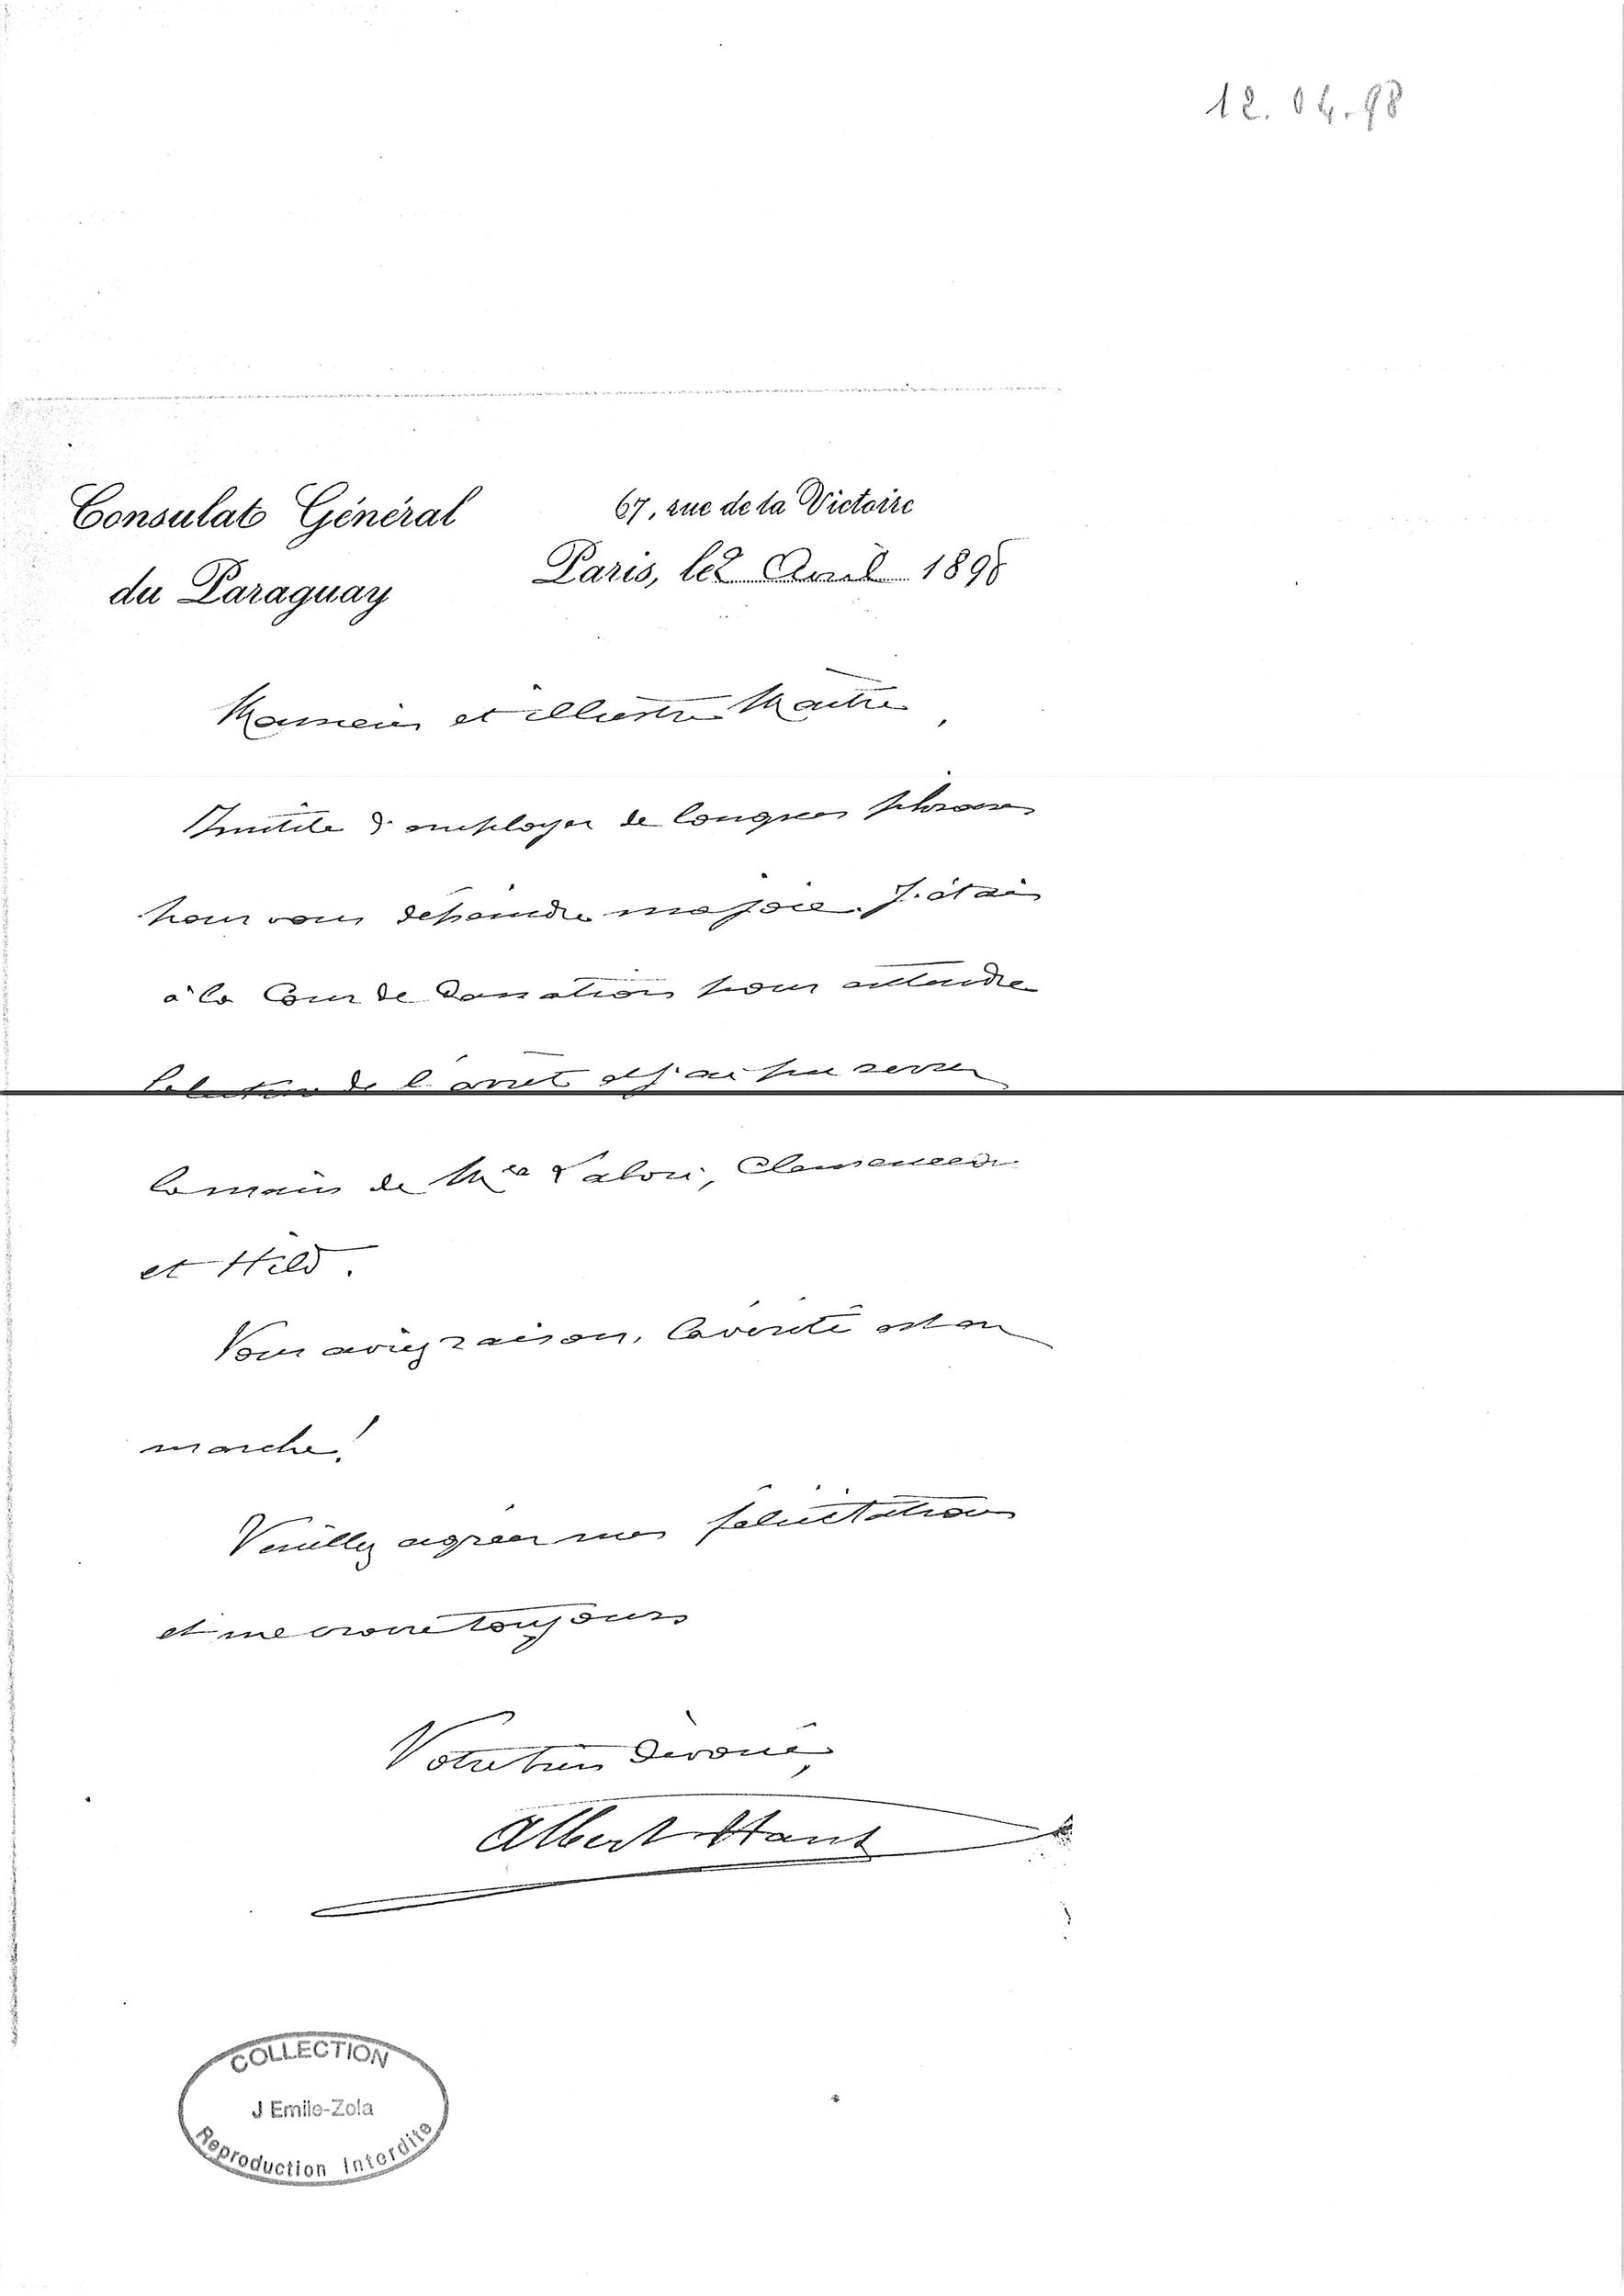 12.04.98
Consulat Général
du Paraguay
67, rue de la Victoire
Paris, le 2 Avril 1898
Monsieur et illustre Maître,
Inutile d'employer de longues phrases
pour vous dépeindre ma joie. J'étais
à la Cour de Cassation pour entendre
la lecture de l'arrêt et j'ai pu serrer
la main de Mes Labori, Clemenceau
et Hild.
Vous aviez raison, la vérité est en
marche!
Veuillez agréer mes félicitations
et me croire toujours
Votre bien dévoué,
Albert
COLLECTION
J Emile-Zola
Reproduction Interdite